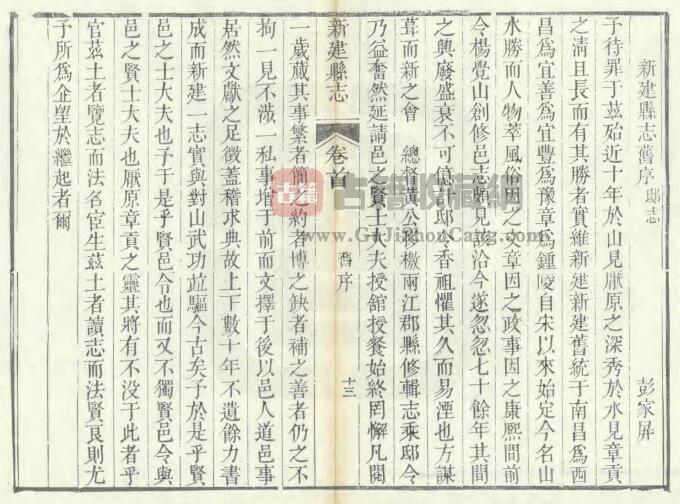 新建縣志舊序 邸志
彭家屏
予待罪于茲殆近十年於山見厭原之深秀於水見章貢
之清且長而有其勝者實維新建新建舊統于南昌為西
昌為宜善為宜豐為豫章為鍾陵自宋以來始定今名山
水勝而人物萃風俗因之文章因之政事因之康熙間前
令楊覺山創修邑志頗見該洽今遂忽忽七十餘年其間
之興廢盛衰不可億計邸令香祖懼其久而易湮也方謀
葺而新之會 總督黃公移檄兩江郡縣修輯志乘邸令
乃益奮然延請邑之賢士大夫授舘授餐始終罔懈凡閱
新建縣志 卷首 舊序 十三
一歲蕆其事繁者簡之約者博之缺者補之善者仍之不
拘一見不涉一私事增于前而文擇于後以邑人道邑事
居然文獻之足徵蓋稽求典故上下數十年不遺餘力書
成而新建一志實與對山武功並驅今古矣予於是乎賢
邑之士大夫也予于是乎賢邑令也而又不獨賢邑令與
邑之賢士大夫也厭原章貢之靈其將有不没于此者乎
官茲土者覽志而法名宦生茲土者讀志而法賢良則尤
予所為企望於繼起者爾
古籍 古籍收藏網
www.GuJiShouCang.com